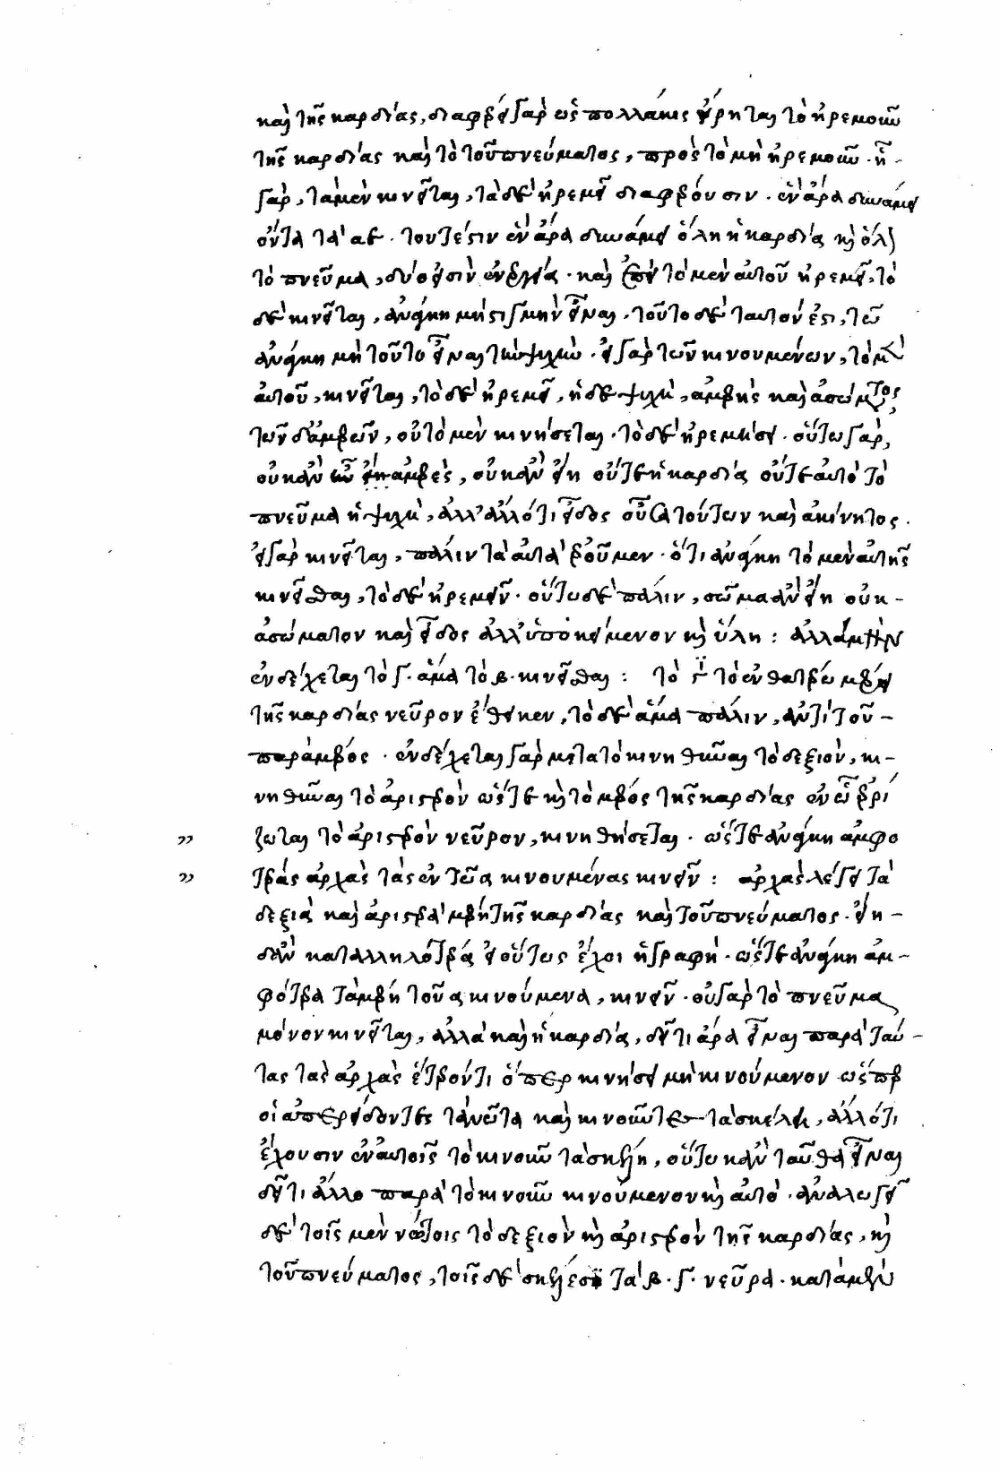 καὶ τῆς καρδίας, διαφέρει γὰρ ὡς πολλάκις εἴρηται τὸ ἠρεμοῦν
τῆς καρδίας καὶ τὸ τοῦ πνεύματος, πρὸς τὸ μὴ ἠρεμοῦν. ᾗ
γὰρ, τὰ μὲν κινεῖται, τὰ δὲ ἠρεμεῖ διαφέρουσιν. ἓν ἄρα δυνάμει
ὄντα τὰ αβ. τουτέστιν ἓν ἄρα δυνάμει ὅλη ἡ καρδία κὴ ὅλον
τὸ πνεῦμα, δύο εἰσὶν ἐνεργείᾳ. καὶ ἐπεὶ τὸ μὲν αὐτοῦ ἠρεμεῖ, τὸ
δὲ κινεῖται, ἀνάγκη μὴ στιγμὴν εἶναι. τοῦτο δὲ ταυτόν ἐστι, τῶ
ἀνάγκη μὴ τοῦτο εἶναι τὴν ψυχὴν. εἰ γὰρ τῶν κινουμένων, τὸ μὲν
αὐτοῦ, κινεῖται, τὸ δὲ ἠρεμεῖ, ἡ δὲ ψυχὴ, ἀμερὴς καὶ ἀσώματος,
τῶν δ' ἀμερῶν, οὐ τὸ μὲν κινήσεται. τὸ δὲ ἠρεμήσει. οὕτω γὰρ,
οὐκ ἂν εἴη ἀμερὲς, οὐκ ἂν εἴη οὔτε ἡ καρδία οὔτε αὐτὸ τὸ
πνεῦμα ἡ ψυχὴ, ἀλλ' ἄλλό τι εἶδος οὖσα τούτων καὶ ἀκίνητος.
εἰ γὰρ κινεῖται, πάλιν τὰ αὐτὰ ἐροῦμεν. ὅτι ἀνάγκη τὸ μὲν αὐτῆς
κινεῖσθαι, τὸ δὲ ἠρεμεῖν. οὕτω δὲ πάλιν, σῶμα ἂν εἴη οὐκ
ἀσώματον καὶ εἶδος ἀλλ' ὑποκείμενον κὴ ὕλη: ἀλλὰ μὴν
ἐνδέχεται τὸ γ. ἅμα τὸ β. κινεῖσθαι: τὸ γ̈ τὸ ἐν θατέρω μέρει
τῆς καρδίας νεῦρον ἔθηκεν, τὸ δὲ ἅμα πάλιν, ἀντὶ τοῦ
παρὰ μέρος. ἐνδέχεται γὰρ μετὰ τὸ κινηθῆναι τὸ δεξιὸν, κι-
νηθῆναι τὸ ἀριστερὸν ὥστε κὴ τὸ μέρος τῆς καρδίας ἐν ὧ ἐρρί
ζωται τὸ ἀριστερὸν νεῦρον, κινηθήσεται. ὥστε ἀνάγκη ἀμφο
τέρας ἀρχὰς τὰς ἐν τῶ α κινουμένας κινεῖν: ἀρχὰς λέγει τὰ
δεξιὰ καὶ ἀριστερὰ μέρη τῆς καρδίας καὶ τοῦ πνεύματος. εἴη
δ' ἂν καταλληλότερα εἰ οὕτως ἔχοι ἡ γραφὴ. ὥστε ἀνάγκη ἀμ-
φότερα τὰ μέρη τοῦ α κινούμενα, κινεῖν. οὐ γὰρ τὸ πνεῦμα
μόνον κινεῖται, ἀλλὰ καὶ ἡ καρδία, δεῖ τι ἄρα εἶναι παρὰ ταύ-
τας τὰς ἀρχὰς ἕτερόν τι ὅπερ κινήσει μὴ κινούμενον ὥσπερ
οἱ ἀπερείδοντες τὰ νῶτα καὶ κινοῦντες τὰ σκέλη, ἄλλό τι
ἔχουσιν ἐν αὐτοῖς τὸ κινοῦν τὰ σκέλη, οὕτω κἀνταῦθα εἶναι
δεῖ τι ἄλλο παρὰ τὸ κινοῦν κινούμενον κὴ αὐτὸ. ἀναλογεῖ
δὲ τοῖς μὲν νώτοις τὸ δεξιὸν κὴ ἀριστερὸν τῆς καρδίας, κὴ
τοῦ πνεύματος, τοῖς δὲ σκέλεσι τὰ β. γ. νεῦρα. κατὰ μέρος